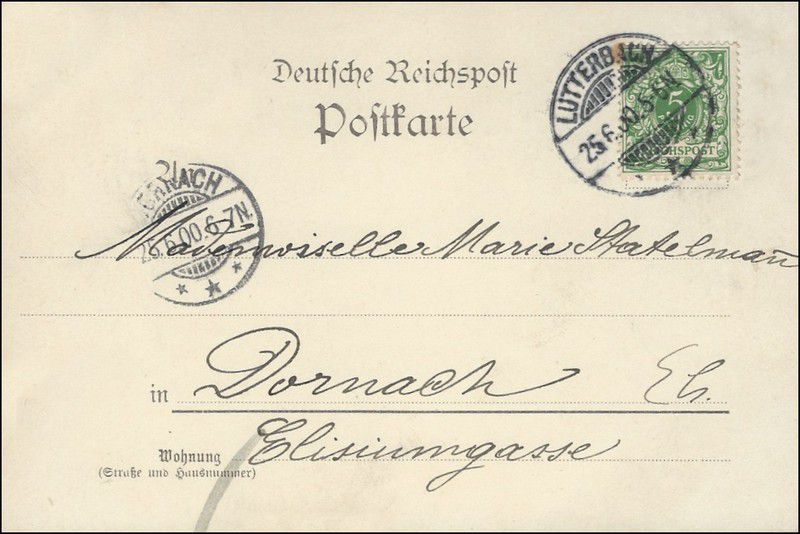 Deutsche Reichspost
Postkarte
LUTTERBACH
25.6.00.5-6N
5
REICHSPOST
DORNACH
25.6.00.6-7N.
Mademoiselle Marie Statelmann
in Dornach Els.
Wohnung
(Straße und Hausnummer)
Elisiumgasse